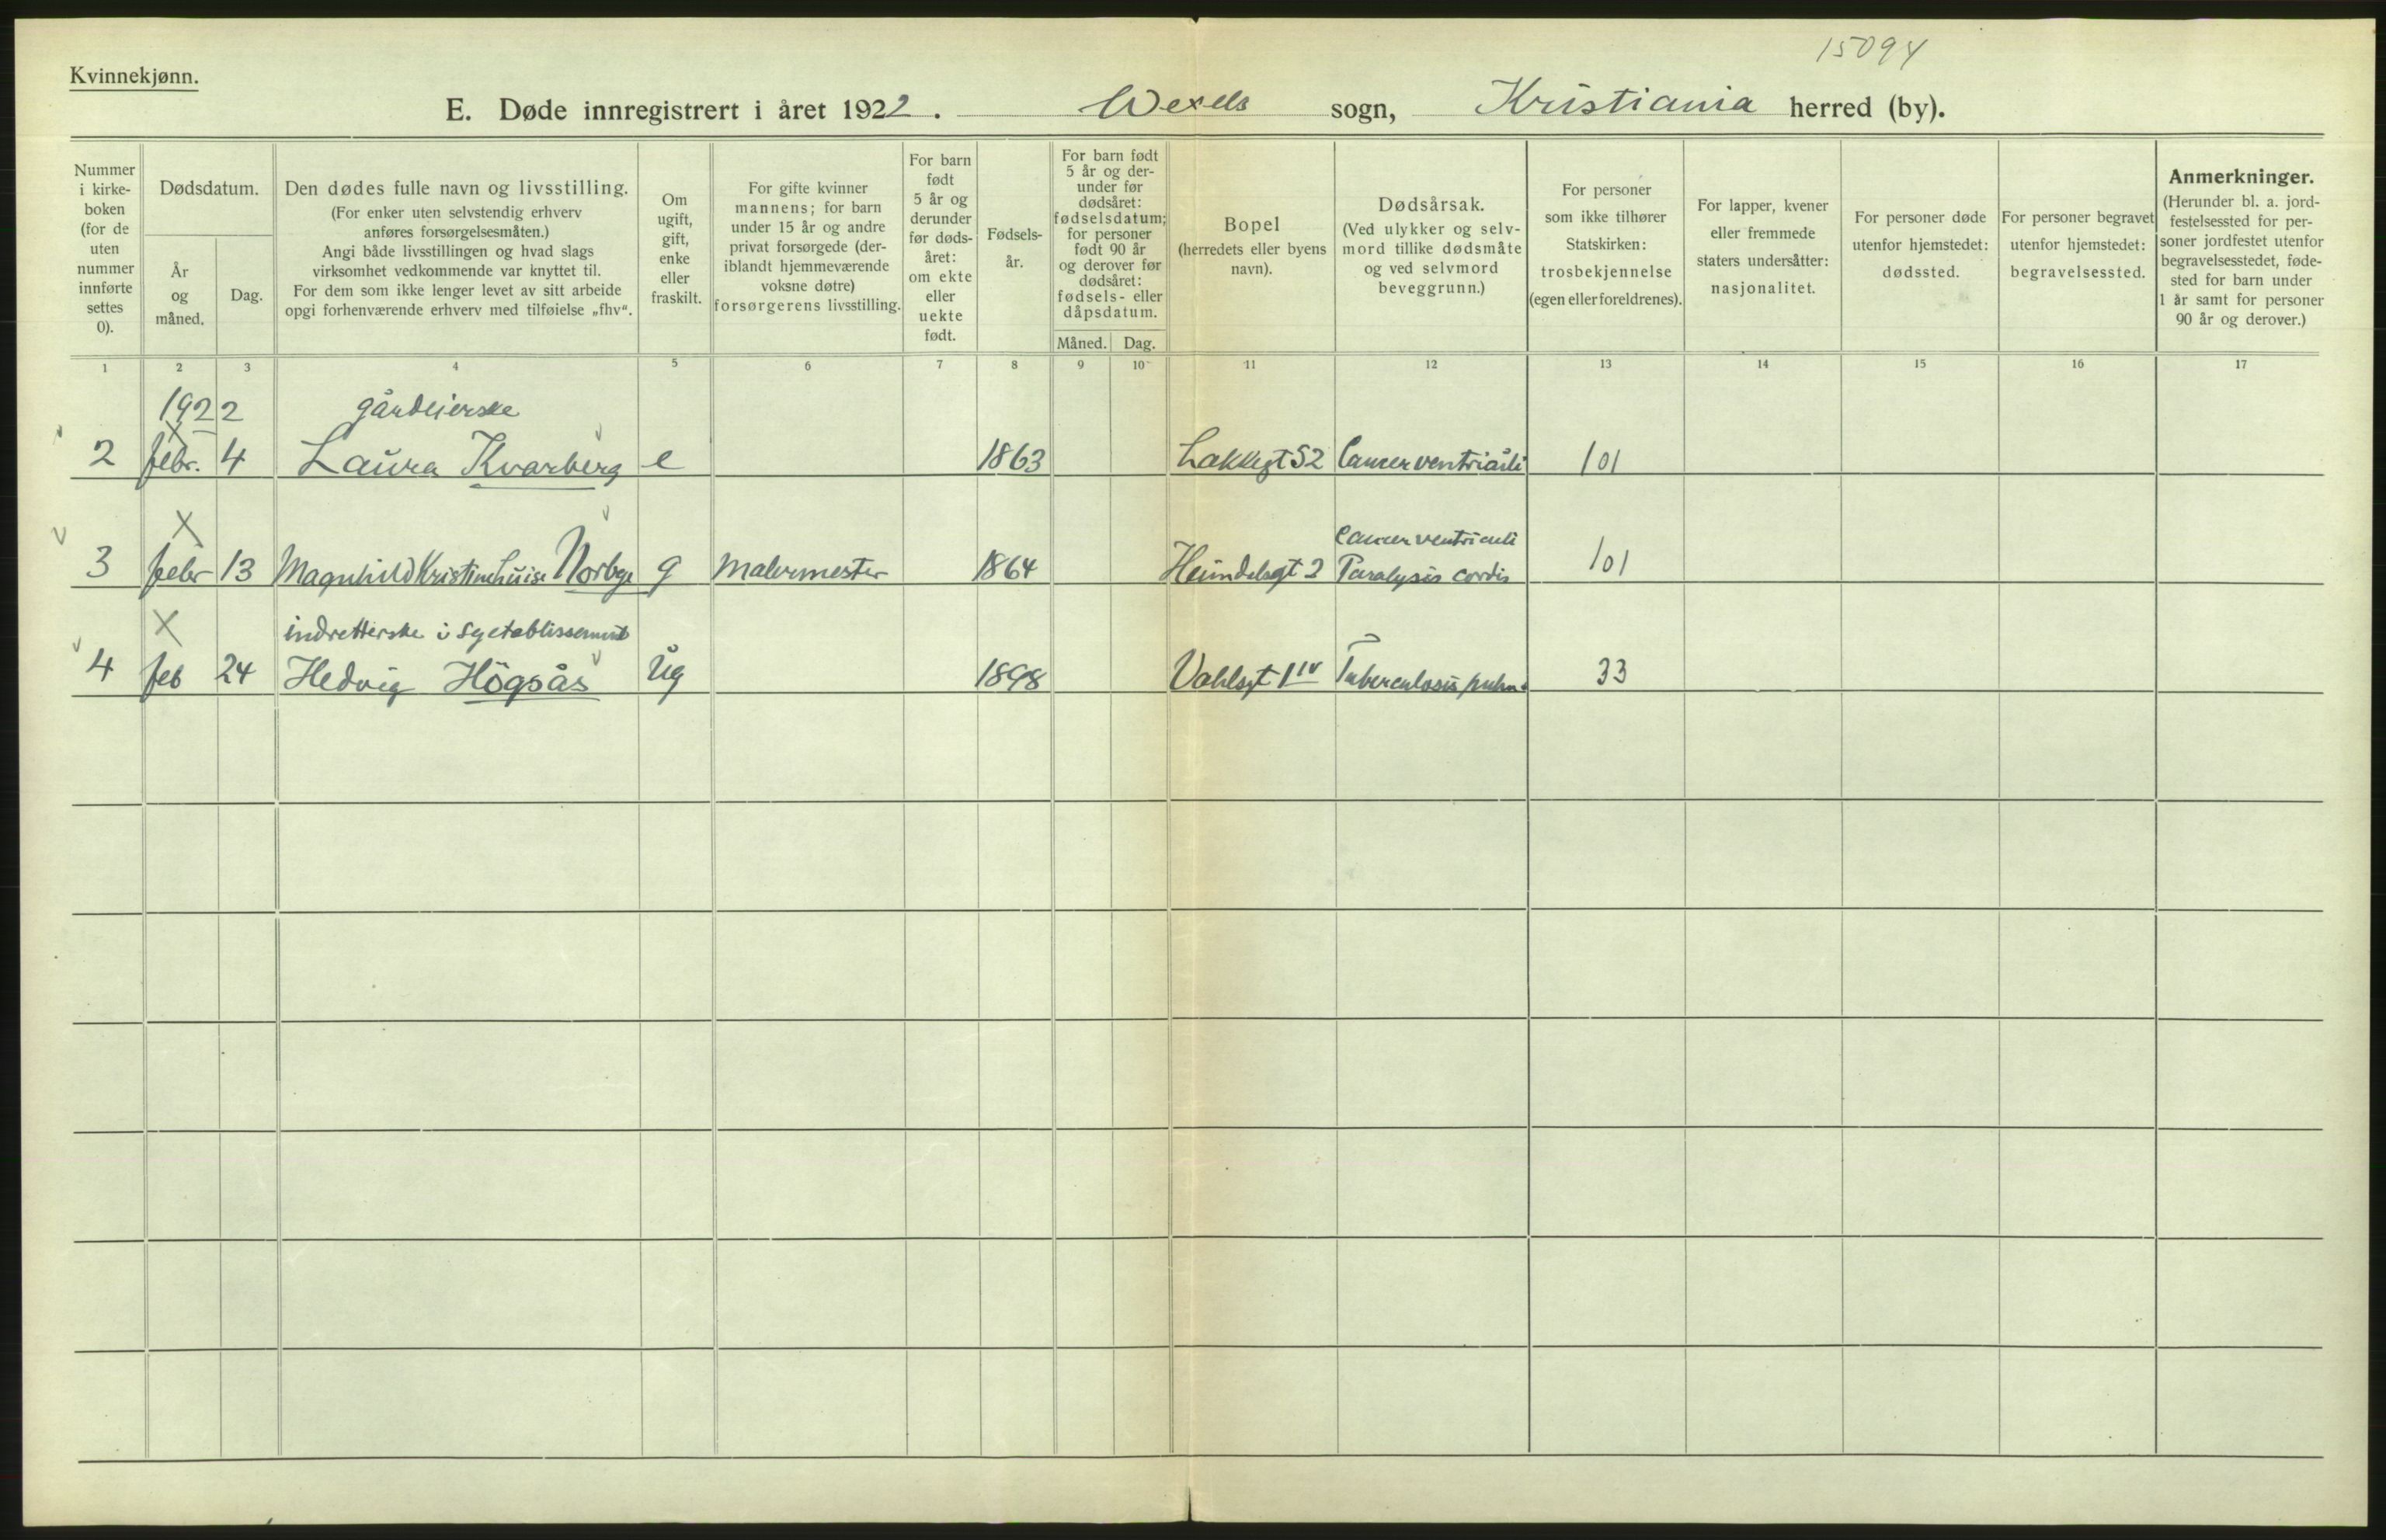 15094
Kvinnekjønn.
E. Døde innregistrert i året 1922. Wexels sogn, Kristiania herred (by).
Nummer
i kirke-
boken
(for de
uten
nummer
innførte
settes
0).
Dødsdatum.
År
og
måned.
Dag.
Den dødes fulle navn og livsstilling.
(For enker uten selvstendig erhverv
anføres forsørgelsesmåten.)
Angi både livsstillingen og hvad slags
virksomhet vedkommende var knyttet til.
For dem som ikke lenger levet av sitt arbeide
opgi forhenværende erhverv med tilføielse „fhv“.
Om
ugift,
gift,
enke
eller
fraskilt.
For gifte kvinner
mannens; for barn
under 15 år og andre
privat forsørgede (der-
iblandt hjemmeværende
voksne døtre)
forsørgerens livsstilling.
For barn
født
5 år og
derunder
før døds-
året:
om ekte
eller
uekte
født.
Fødsels-
år.
For barn født
5 år og der-
under før
dødsåret:
fødselsdatum;
for personer
født 90 år
og derover før
dødsåret:
fødsels- eller
dåpsdatum.
Måned. Dag.
Bopel
(herredets eller byens
navn).
Dødsårsak.
(Ved ulykker og selv-
mord tillike dødsmåte
og ved selvmord
beveggrunn.)
For personer
som ikke tilhører
Statskirken:
trosbekjennelse
(egen eller foreldrenes).
For lapper, kvener
eller fremmede
staters undersåtter:
nasjonalitet.
For personer døde
utenfor hjemstedet:
dødssted.
For personer begravet
utenfor hjemstedet:
begravelsessted.
Anmerkninger.
(Herunder bl. a. jord-
festelsessted for per-
soner jordfestet utenfor
begravelsesstedet, føde-
sted for barn under
1 år samt for personer
90 år og derover.)
1 2 3 4 5 6 7 8 9 10 11 12 13 14 15 16 17
1922 gårdeierske
2 febr. 4 Laura Kvarberg e 1863 Lakkegt 52 Cancer ventriculi 101
X cancer ventriculi
3 febr 13 Magnhild Kristine Luise Norbye g Malermester 1864 Heimdalsgt 2 Paralysis cordis 101
X indretterske i syetablissement
4 feb 24 Hedvig Högsås Ug 1898 Vahlsgt 1 IV Tuberculosis pulm. 33